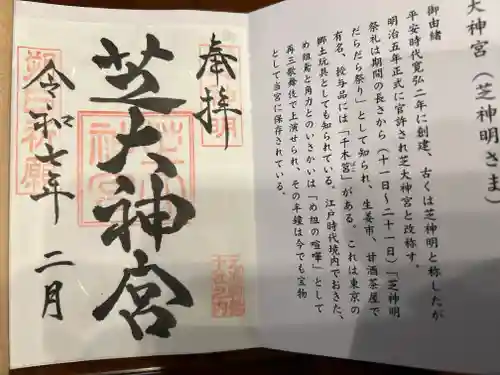 奉拝
芝大神宮
令和七年 二月
大神宮(芝神明さま)
御由緒
平安時代寛弘二年に創建、古くは芝神明と称したが
明治五年正式に官許され芝大神宮と改称す。
祭礼は期間の長さから(十一日〜二十一日)「芝神明
だらだら祭り」として知られ、生姜市、甘酒茶屋で
有名、授与品には「千木宮」がある。これは東京の
郷土玩具としても知られている。江戸時代境内でおきた、
め組鳶と角力とのいさかいは「め組の喧嘩」として
再三歌舞伎で上演せられ、その半鐘は今でも宝物
として当宮に保存されている。